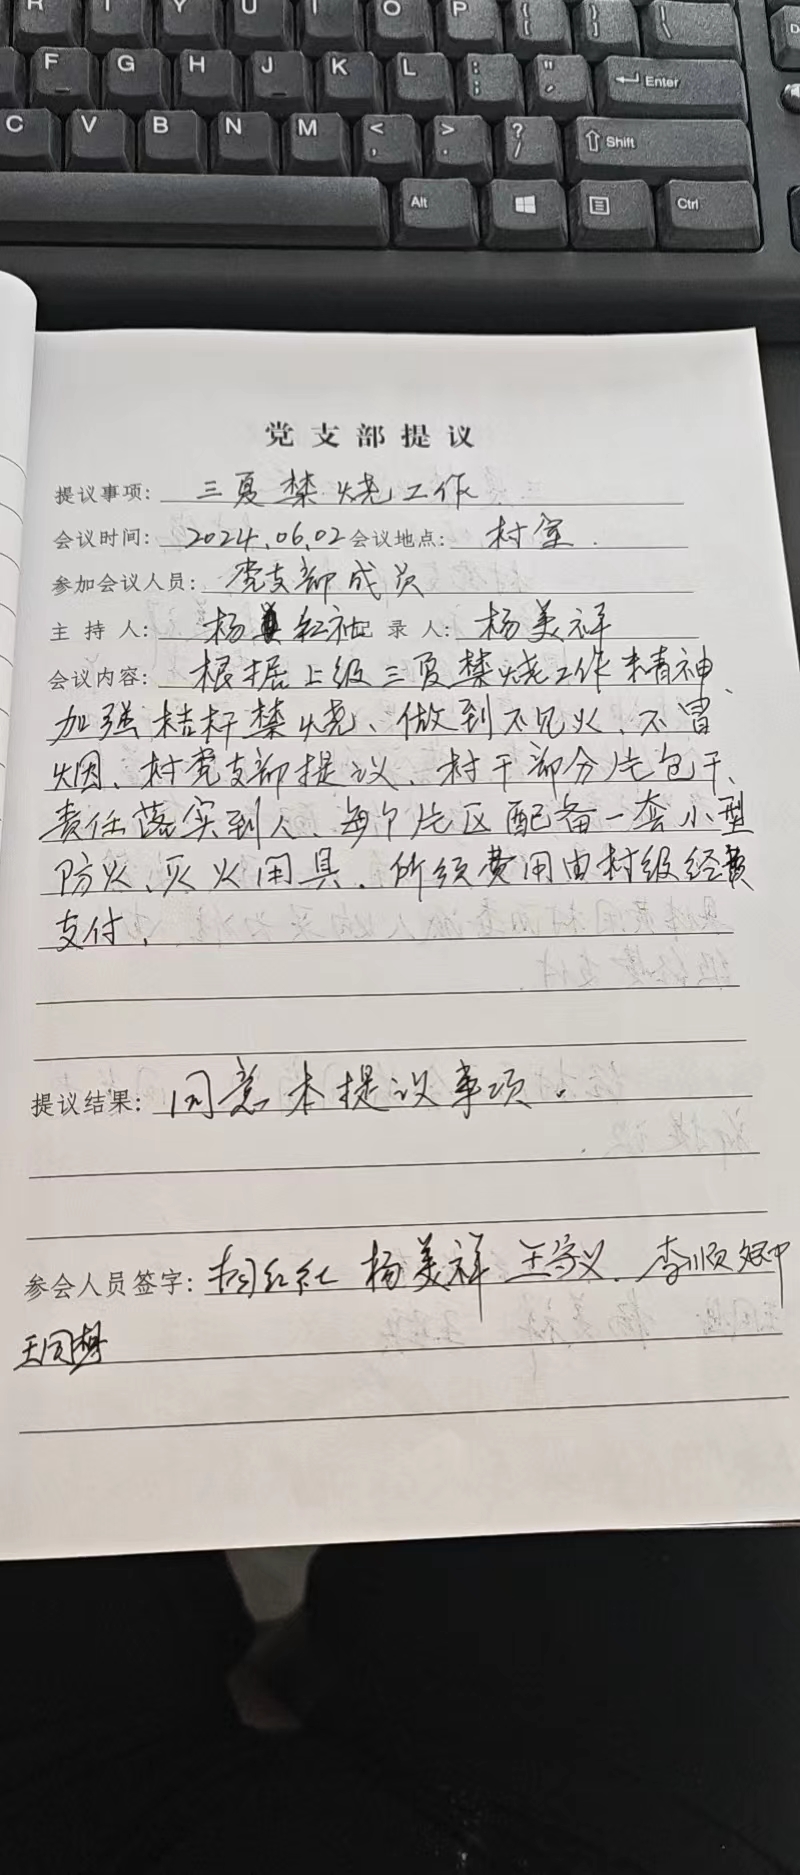 R T Y U I O P { [ } ] | \
F G H J K L : ; " ' Enter
C V B N M < , > . ? / Shift
Alt Ctrl
党支部提议
提议事项: 三夏禁烧工作
会议时间: 2024.06.02 会议地点: 村室.
参加会议人员: 党支部成员
主持人: 杨红社 记录人: 杨美祥
会议内容: 根据上级三夏禁烧工作精神、
加强桔杆禁烧、做到不见火、不冒
烟、村党支部提议、村干部分片包干、
责任落实到人、每个片区配备一套小型
防火、灭火用具、所须费用由村级经费
支付、
提议结果: 同意本提议事项。
参会人员签字: 杨红社 杨美祥 王守义、李顺
王同